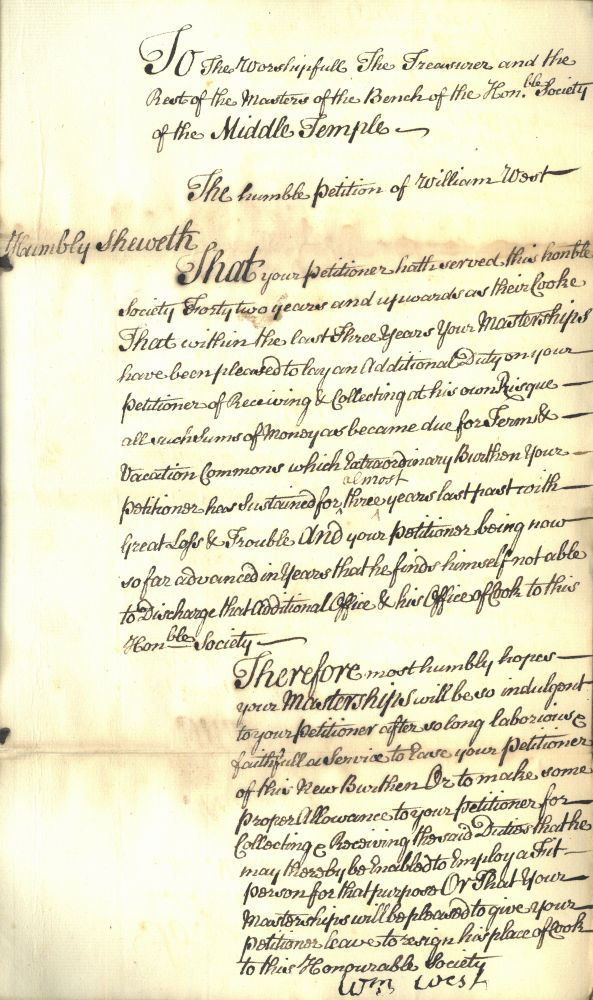 To The Worshipfull The Treasurer and the
Rest of the Masters of the Bench of the Hon.ble Society
of the Middle Temple
The humble Petition of William West
Humbly Sheweth
That your Petitioner hath served this honble
Society Forty two years and upwards as their Cooke
That within the last Three Years Your Masterships
have been pleased to lay an Additional Duty on your
Petitioner of Receiving & Collecting at his own Risque
all such Sums of Money as became due for Terms &
Vacation Commons which Extraordinary Burthen Your
almost
Petitioner has Sustained for ^ three years last past with
Great Loss & Trouble And your Petitioner being now
so far advanced in Years that he finds himself not able
to Discharge that Additional Office & his Office of Cook to this
Hon.ble Society
Therefore most humbly hopes
your Masterships will be so indulgent
to your Petitioner after so long laborious &
faithfull a Service to Ease your Petitioner
of this New Burthen Or to make some
proper Allowance to your Petitioner for
Collecting & Receiving the said Duties that he
may thereby be Enabled to Employ a Fit
person for that purpose Or That Your
Masterships will be pleased to give your
Petitioner leave to resign his place of Cook
to this Honourable Society
Wm West